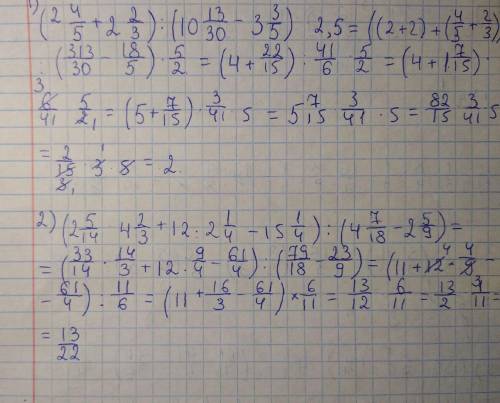 1)
(2 4/5 + 2 2/3) : (10 13/30 - 3 3/5) 2,5 = ((2+2) + (4/5 + 2/3)
(313/30 - 18/5) · 5/2 = (4 + 22/15) : 41/6 · 5/2 = (4 + 1 7/15) ·
3
6/41 · 5/2 1 = (5 + 7/15) · 3/41 · 5 = 5 7/15 · 3/41 · 5 = 82/15 · 3/41 · 5
= 2/15 · 3 · 8 = 2.
2) (2 5/14 4 2/3 + 12 : 2 1/4 - 15 1/4) : (4 7/18 - 2 5/9) =
= (33/14 · 14/3 + 12 · 9/4 - 61/4) · (79/18 - 23/9) = (11 + 12 · 4/9 -
- 61/4) : 11/6 = (11 + 16/3 - 61/4) × 6/11 = 13/12 · 6/11 = 13/2 · 1/11 =
= 13/22